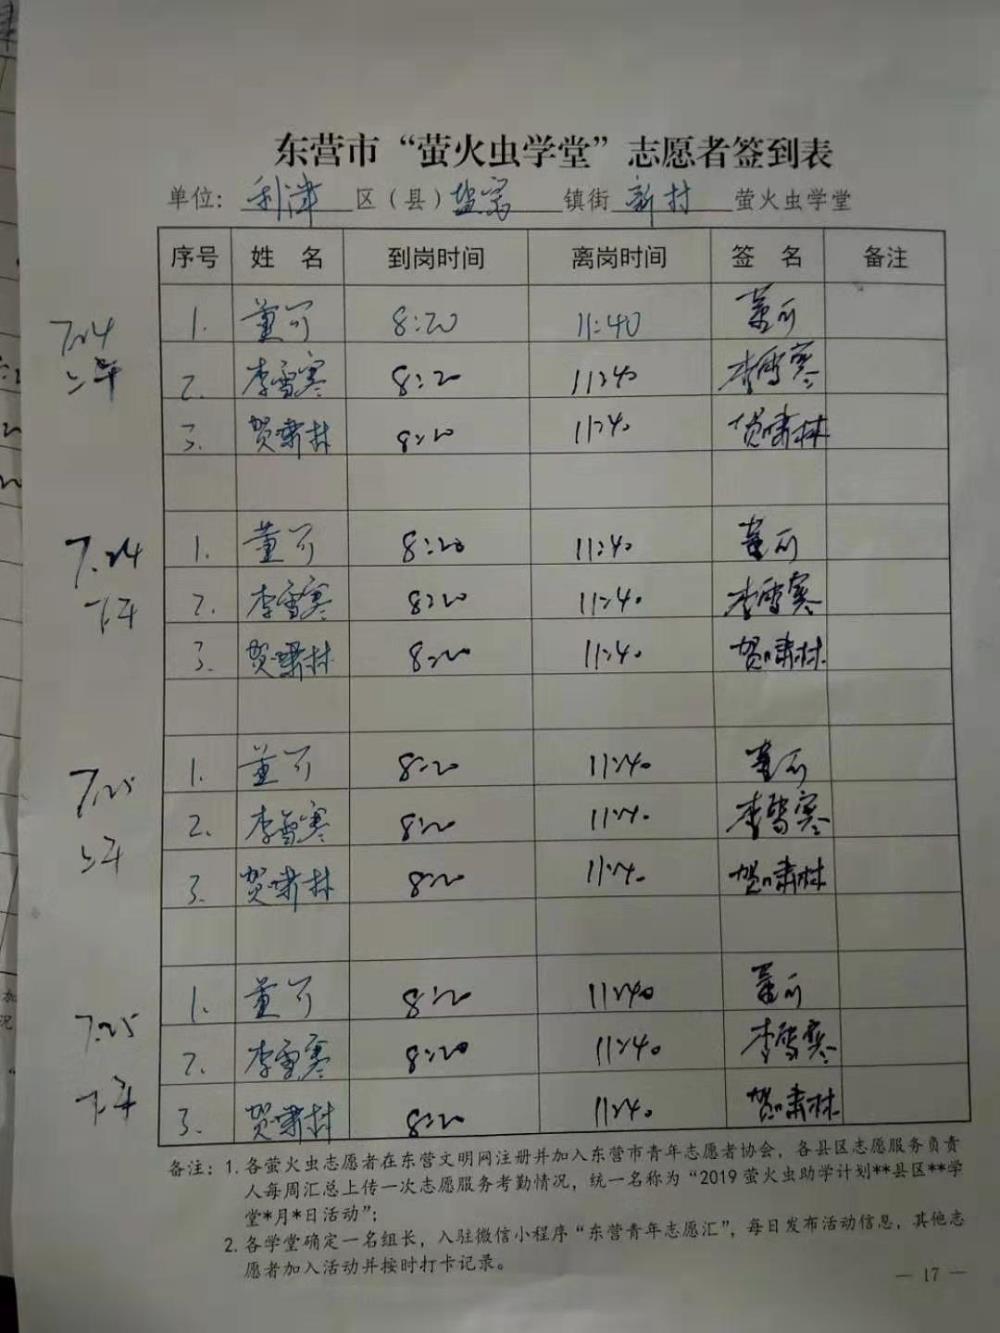 东营市“萤火虫学堂”志愿者签到表
单位：利津区（县）盐窝镇街新村萤火虫学堂
序号 姓 名 到岗时间 离岗时间 签 名 备注
7.24 上午
1. 董可 8:20 11:40 董可
2. 李雪寒 8:20 11:40 李雪寒
3. 贺啸林 8:20 11:40 贺啸林
7.24 下午
1. 董可 8:20 11:40 董可
2. 李雪寒 8:20 11:40 李雪寒
3. 贺啸林 8:20 11:40 贺啸林
7.25 上午
1. 董可 8:20 11:40 董可
2. 李雪寒 8:20 11:40 李雪寒
3. 贺啸林 8:20 11:40 贺啸林
7.25 下午
1. 董可 8:20 11:40 董可
2. 李雪寒 8:20 11:40 李雪寒
3. 贺啸林 8:20 11:40 贺啸林
备注：1. 各萤火虫志愿者在东营文明网注册并加入东营市青年志愿者协会，各县区志愿服务负责
人每周汇总上传一次志愿服务考勤情况，统一名称为“2019 萤火虫助学计划**县区**学
堂*月*日活动”；
2. 各学堂确定一名组长，入驻微信小程序“东营青年志愿汇”，每日发布活动信息，其他志
愿者加入活动并按时打卡记录。
— 17 —